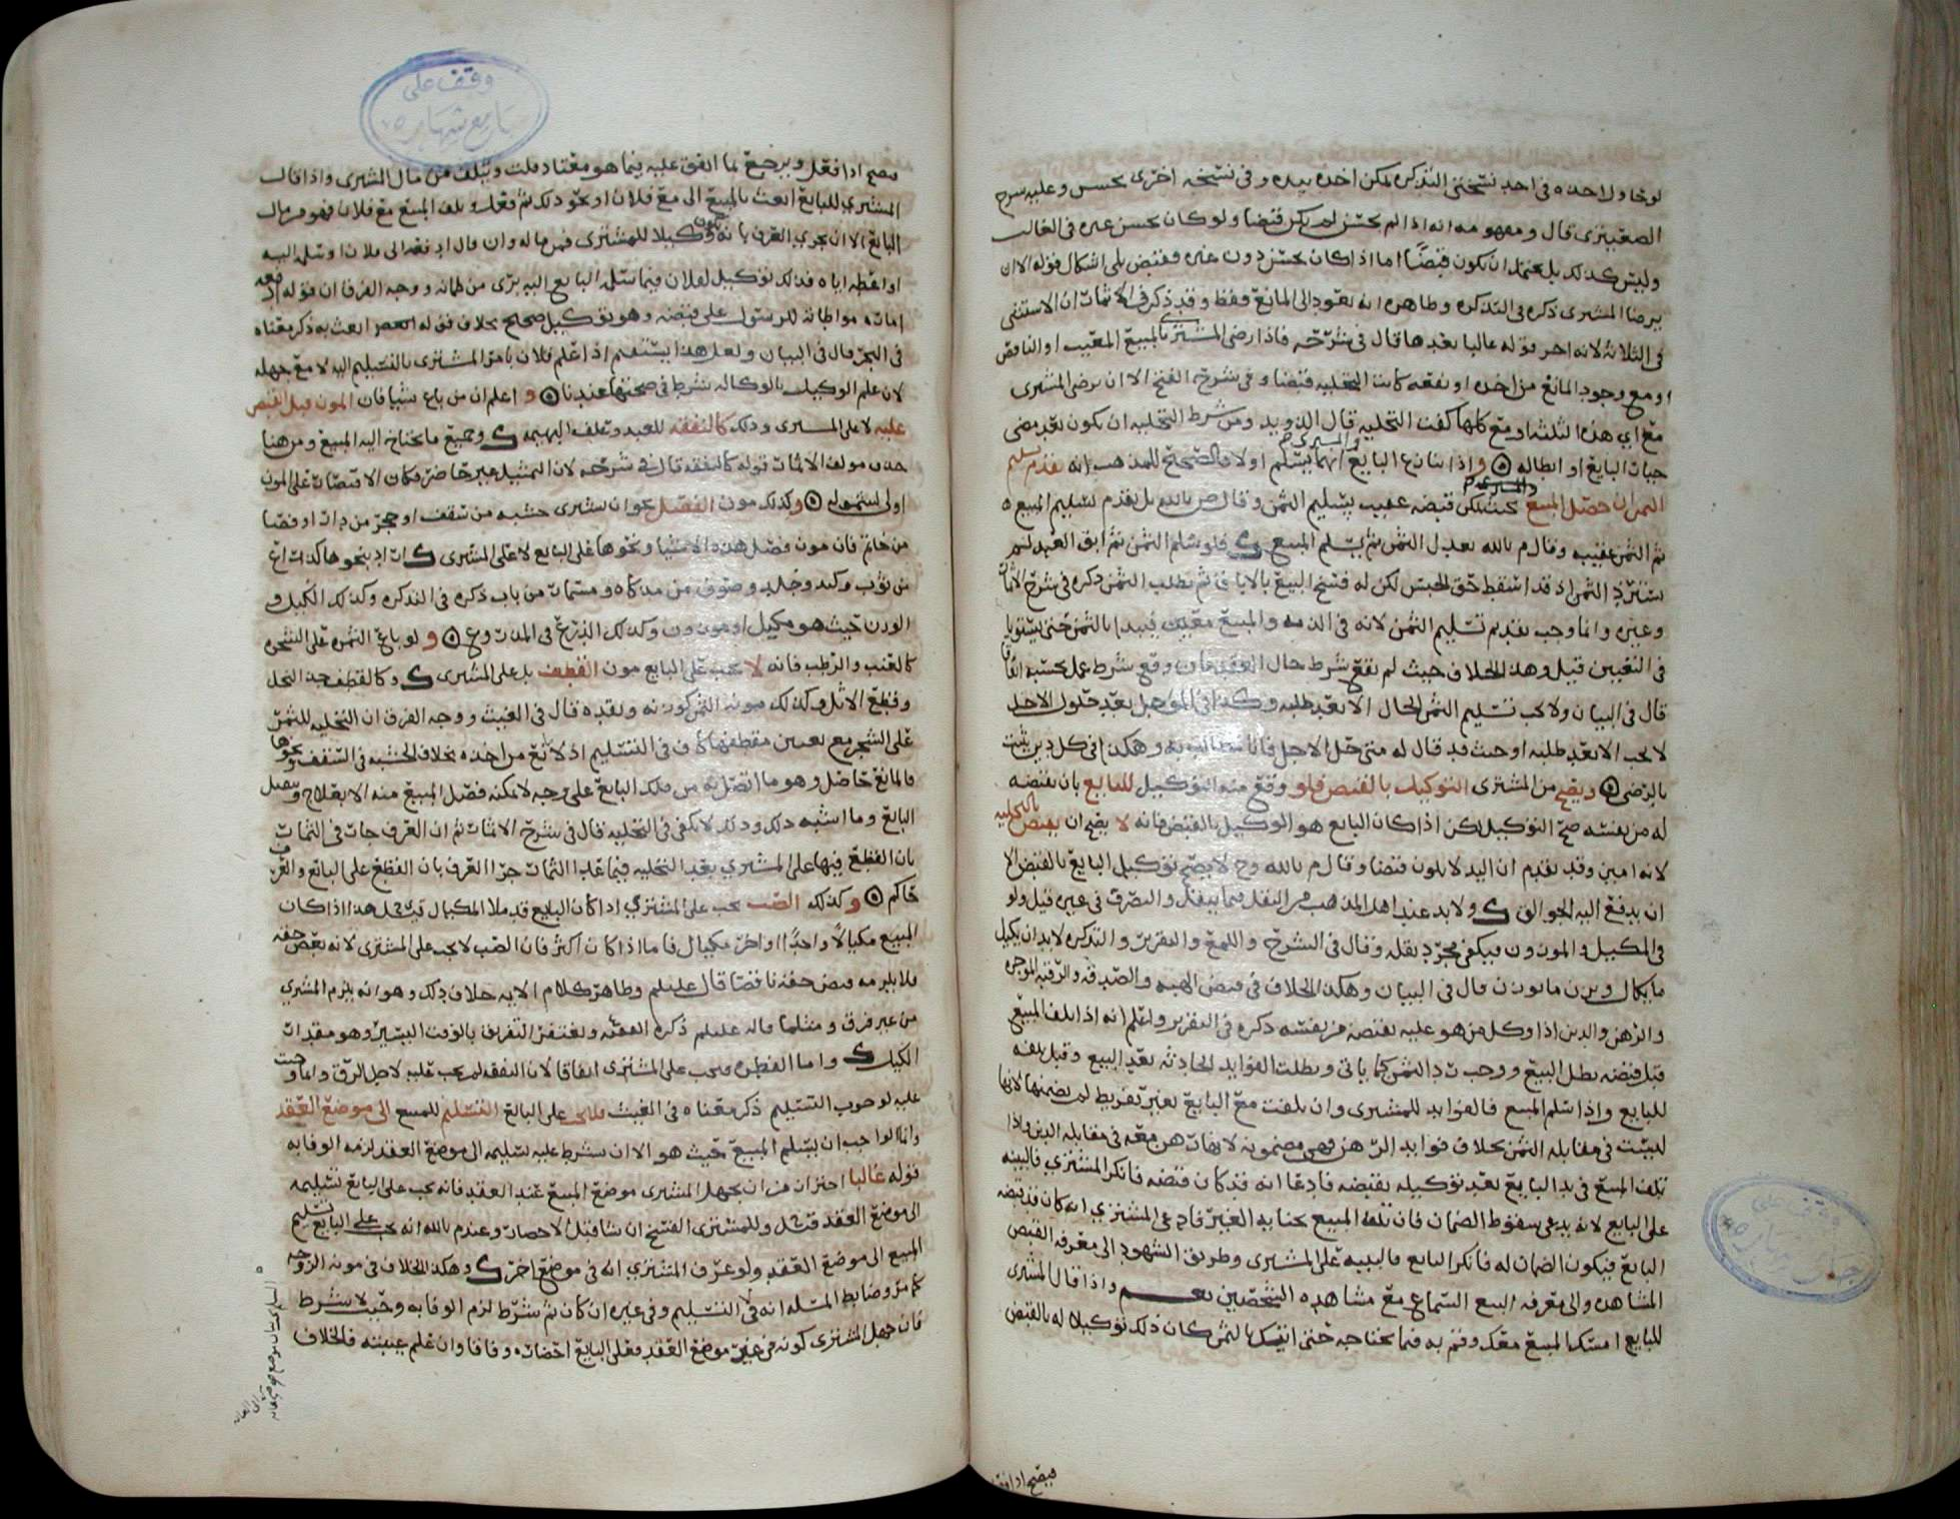 لوخا ولاحده في احد نسختي التذكره لمكن اخذه بيده وفي نسخه اخرى بحسن وعليه سرح
قال ومفهومه انه اذا لم بحسن لم يكن قبضا ولو كان بحسن غيره في الغالب
وليس كذلك بل يحتمل ان يكون قبضا اما اذا كان بحسن دون غيره فقبض بلى اشكال قوله الا ان
يرضا المشترى ذكره في التذكره وظاهره انه يعود الى المانع فقط وقد ذكر في الاثمات ان الاستثنى
في الثلاثة لانه اخر قوله غالبا بعدها قال في شرحه فاذا رضى المشتري بالمبيع المعيب او الناقص
او مع وجود المانع من اخذه او نفعه كانت التخليه قبضا وفي شرح الفتح الا ان يرضى المشترى
مع اي هذه الثلثه او مع كلها كفت التخليه قال الدويد ومن شرط التخليه ان يكون بعد مضى
خيار البايع او ابطاله ۞ واذا تنازع البايع والمشترى ايهما يسلم اولا فالصحيح للمذهب انه يقدم تسليم
الثمن ان حضر المبيع بحيث يمكن قبضه عقيب تسليم الثمن وقال ض بالله بل يقدم تسليم المبيع
ثم الثمن عقيبه وقال م بالله يعدل الثمن ثم يسلم المبيع فلو سلم الثمن ثم ابق العبد لم
يسترد الثمن اذ قد اسقط حق الحبس لكن له فسخ البيع بالاباق ثم يطلب الثمن ذكره في شرح الاثمات
وغيره وانما وجب تقديم تسليم الثمن لانه في الذمه والمبيع معين فيبدا بالثمن حتى يستويا
في التعيين قيل وهذا الخلاف حيث لم يقع شرط حال العقد فان وقع شرط عمل بحسبه اتفاقا
قال في البيان ولا يجب تسليم الثمن الحال الا بعد طلبه وكذا في المؤجل بعد حلول الاجل
لا يجب الا بعد طلبه او حيث قد قال له متى حل الاجل فانا مطالب به وهكذا في كل دين يثبت
بالرضى ۞ ويصح من المشترى التوكيل بالقبض فلو وقع منه التوكيل للبايع بان يقبضه
له من نفسه صح التوكيل لكن اذا كان البايع هو الوكيل بالقبض فانه لا يصح ان يقبض بالتخليه
لانه امين وقد تقدم ان اليد لا تكون قبضا وقال م بالله وح لا يصح توكيل البايع بالقبض الا
ان يدفع اليه الجوالق ولا بد عند اهل المذهب من النقل فيما ينقل والتصرف في غيره قيل ولو
في المكيل والموزون فيكفي مجرد نقله وقال في الشرح واللمع والتقرير والتذكره لا بد ان يكيل
ما يكال ويزن ما يوزن قال في البيان وهكذا الخلاف في قبض الهبه والصدقه والرقبه الموجره
والرهن والدين اذا وكل من هو عليه بقبضه من نفسه ذكره في التقرير واعلم انه اذا تلف المبيع
قبل قبضه بطل البيع ووجب رد الثمن كما ياتي وبطلت الفوايد الحادثه بعد البيع وقبل تلفه
للبايع واذا سلم المبيع فالفوايد للمشترى وان تلفت مع البايع بغير تفريط لم يضمنها لانها
ليست في مقابلة الثمن بخلاف فوايد الرهن فهي مضمونه لانها رهن معه في مقابله الدين واذا
تلف المبيع في يد البايع بعد توكيله بقبضه فادعا انه قد كان قبضه فانكر المشتري فالبينه
على البايع لانه يدعي سقوط الضمان فان تلف المبيع بجنايه الغير فادعى المشتري انه كان قد قبضه
البايع فيكون الضمان له فانكر البايع فالبينه على المشترى وطريق الشهود الى معرفه القبض
المشاهده والى معرفه البيع السماع مع مشاهده الشخصين نعم واذا قال المشترى
للبايع امسك المبيع معك وقم به فيما يحتاجه حتى اتيك بالثمن كان ذلك توكيلا له بالقبض
فيصح اذا فعل
فيصح اذا فعل ويرجع بما انفق عليه فيما هو معتاد قلت ويتلف من مال المشترى واذا قال
المشتري للبايع ابعث بالمبيع الى مع فلان او نحو ذلك ثم فعل وتلف المبيع مع فلان فهو من مال
البايع الا ان يجري العرف بانه يكون وكيلا للمشترى فمن ماله وان قال ادفعه الى فلان او سلمه اليه
او اعطه اياه فذلك توكيل لفلان فيما سلمه البايع اليه برى من ضمانه ووجه الفرق ان قوله ادفعه
على قبضه وهو توكيل صحيح بخلاف قوله ابعث به ذكر معناه
في البحر قال في البيان ولعل هذا يستقيم اذا علم فلان بامر المشترى بالتسليم اليه لا مع جهله
لان علم الوكيل بالوكاله شرط في صحتها عندنا ۞ واعلم ان من باع شيا فان المون قبل القبض
عليه لا على المشترى وذلك كالنفقه للعبد وعلف البهيمه وجميع ما يحتاج اليه المبيع ومن هنا
حذف مولف الاثمات قوله كالنفقه قال في شرحه لان التمثيل غير حاضر فكان الاقتصار على المون
اولى لشموله ۞ وكذلك مون الفصل نحو ان يشترى خشبه من سقف او حجر من دار او فصا
من خاتم فان مون فصل هذه الاشيا ونحوها على البايع لا على المشترى
من ثوب وكبد وجلد وصوف من مذكاه
الوزن حيث هو مكيل او موزون وكذلك الذرع في المذروع ۞ ولو باع الثمره على الشجره
كالعنب والرطب فانه لا يجب على البايع مون القطف بل على المشترى وكالقطف جذ النخل
وقطع الاثل وكذلك مونه الثمن كوزنه ونقده قال في الغيث ووجه الفرق ان التخليه للثمر
على الشجر مع تعيين مقطعها كاف في التسليم اذ لا مانع من اخذه بخلاف الخشبه في السقف ونحوها
فالمانع حاصل وهو ما اتصل به من ملك البايع على وجه لا يمكنه فصل المبيع منه الا بعلاج وتفصيل
البايع وما اشبه ذلك وذلك لا يكفي في التخليه قال في شرح الاثمات ثم ان العرف جار في الثمار
بان القطع فيها على المشتري بعد التخليه فيما عدا الثمار جرا العرف بان القطع على البايع والعرف
حاكم ۞ وكذلك الصب يجب على المشتري اذا كان البايع قد ملا المكيال قيل هذا اذا كان
المبيع مكيالا واحدا او اخر مكيال فاما اذا كان اكثر فان الصب لا يجب على المشترى لانه بعض حقه
فلا يلزمه قبض حقه ناقصا قال عليلم وظاهر كلام الايمه خلاف ذلك وهو انه يلزم المشتري
من غير فرق ومثلما قاله عليلم ذكره الفقيه ويغتفر التفريق بالوقت اليسير وهو مقدار
الكيل واما الفطره فيجب على المشترى اتفاقا لان النفقه لم يجب عليه لاجل الرق وانما وجبت
عليه لوجوب التسليم ذكر معناه في الغيث فلا يجب على البايع التسليم للمبيع الى موضع العقد
وانما الواجب ان يسلم المبيع حيث هو الا ان يشرط عليه تسليمه الى موضع العقد لزمه الوفا به
قوله غالبا احتراز من ان يجهل المشترى موضع المبيع عند العقد فانه يجب على البايع تسليمه
الى موضع العقد قيل وللمشترى الفسخ ان شا قبل الاحضار وعند م بالله انه يجب على البايع تسليم
المبيع الى موضع العقد ولو عرف المشتري انه في موضع اخر وهكذا الخلاف في مونه الزوجه
كما مر وضابط المسئله انه في التسليم وفي غيره ان كان ثم شرط لزم الوفا به وحيث لا شرط
فان جهل المشترى كونه في غير موضع العقد فعلى البايع احضاره وفاقا وان علم غيبته فالخلاف
وقف على
جامع شهاره
وقف على
جامع شهاره